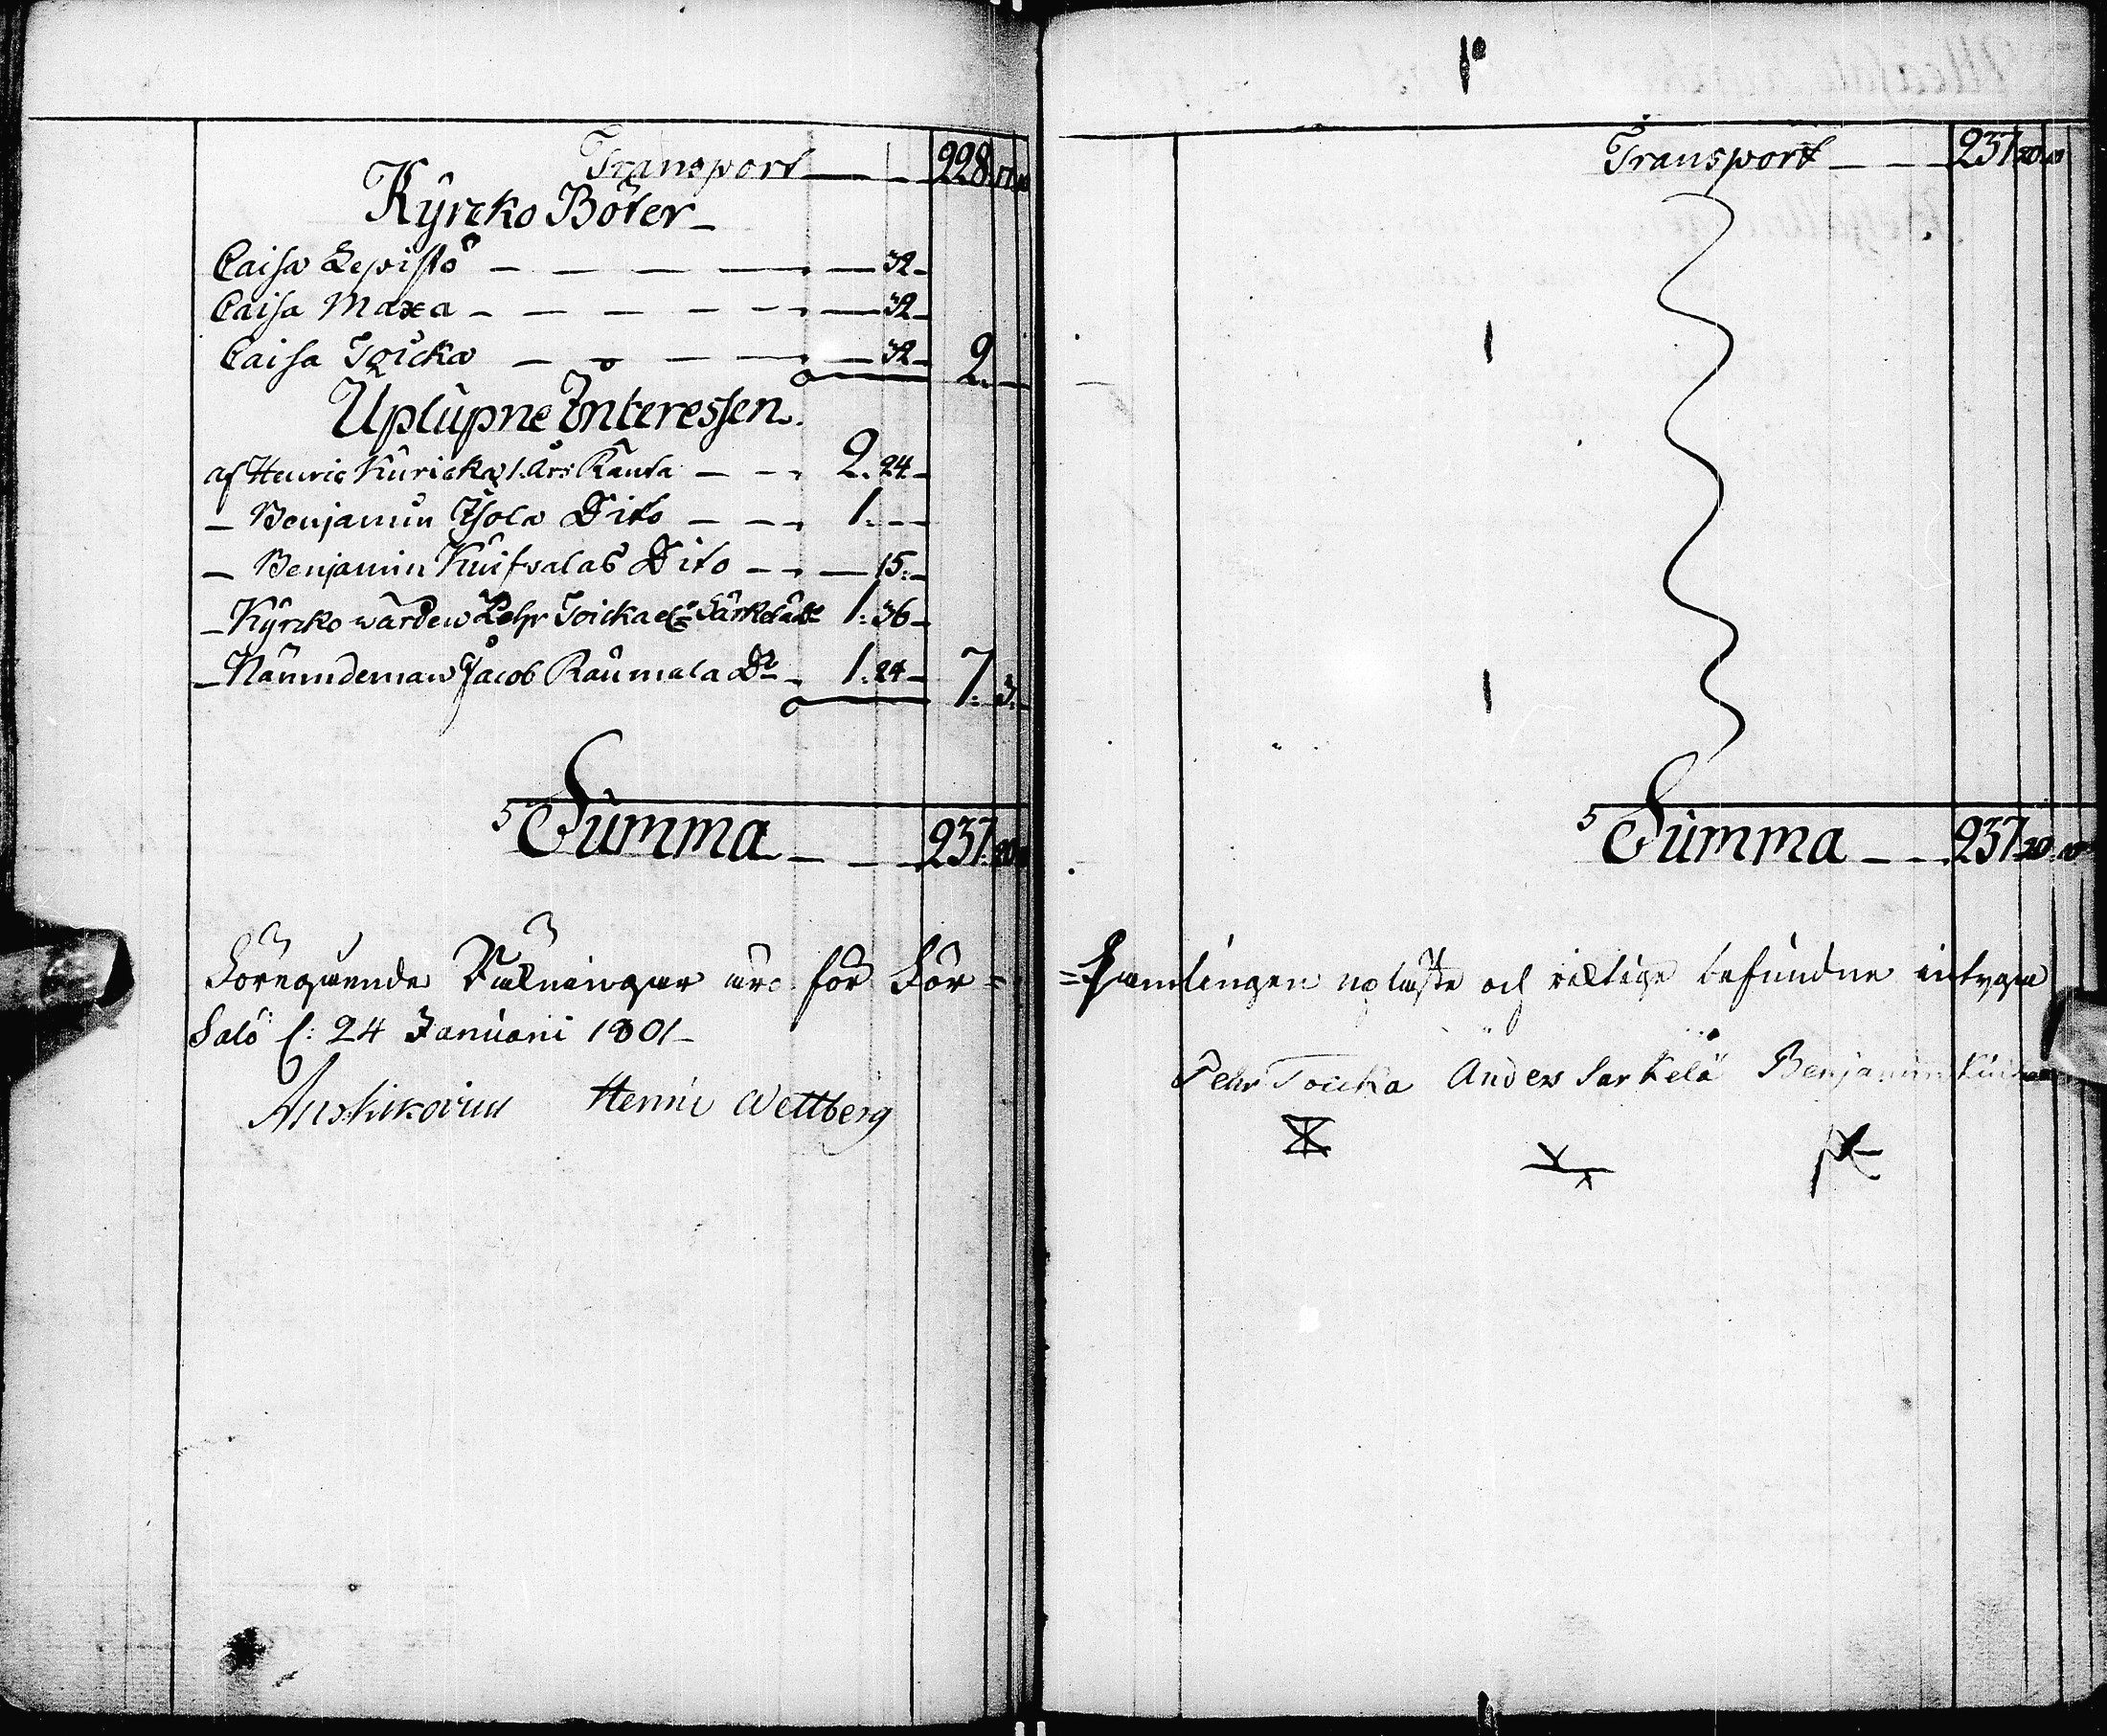 Transport 228. 17. 10
Kÿrcko Böter
Caisa Lepistö 32
Caisa Maxa 32
Caisa Toicka 32 2.
Uplupne Interessen.
af Henric Kuricka 1. Års Ränta 2. 24
Benjamin Isola Dito 1.
Benjamin Kuifvalas Dito 15.
Kÿrcko värden Pehr Toicka et Särkelä Do 1. 36
Nämndeman Jacob Raumala Do 1. 24 7. 3.
Summa 237. 20. 10
Föregående Räkningar äro för För=
Salo d: 24 Januarii 1801
Henric Wettberg
Transport 237 20. 10
Summa 237. 20. 10
=samlingen upläste och riktige befundne intyga
Pehr Toicka Anders Särkelä Benjamin